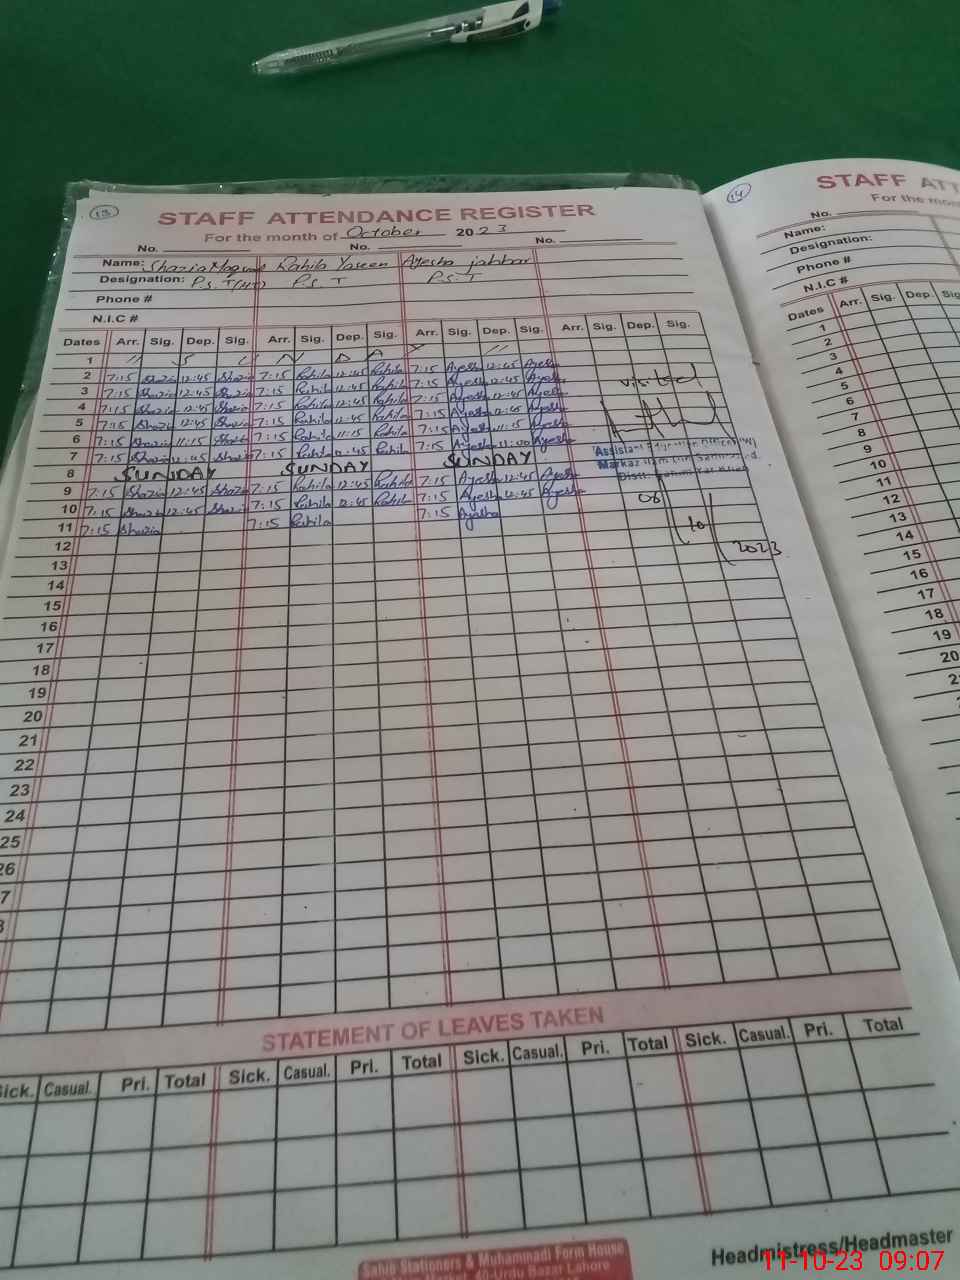 13
STAFF ATTENDANCE REGISTER
For the month of October 2023
No. No. No.
Name: Shazia Maqsood Rahila Yaseen Ayesha jabbar
Designation: P.S.T(HT) P.S.T P.S.T
Phone #
N.I.C #
Dates Arr. Sig. Dep. Sig. Arr. Sig. Dep. Sig. Arr. Sig. Dep. Sig. Arr. Sig. Dep. Sig.
1 // S U N D A Y //
2 7:15 Shazia 12:45 Shazia 7:15 Rahila 12:45 Rahila 7:15 Ayesha 12:45 Ayesha
3 7:15 Shazia 12:45 Shazia 7:15 Rahila 12:45 Rahila 7:15 Ayesha 12:45 Ayesha visited
4 7:15 Shazia 12:45 Shazia 7:15 Rahila 12:45 Rahila 7:15 Ayesha 12:45 Ayesha
5 7:15 Shazia 12:45 Shazia 7:15 Rahila 12:45 Rahila 7:15 Ayesha 12:45 Ayesha
6 7:15 Shazia 11:15 Shazia 7:15 Rahila 11:15 Rahila 7:15 Ayesha 11:15 Ayesha
7 7:15 Shazia 12:45 Shazia 7:15 Rahila 12:45 Rahila 7:15 Ayesha 11:00 Ayesha
Assistant Education Officer (W)
Markaz
Distt. Rahim Yar Khan
8 SUNDAY SUNDAY SUNDAY
9 7:15 Shazia 12:45 Shazia 7:15 Rahila 12:45 Rahila 7:15 Ayesha 12:45 Ayesha
10 7:15 Shazia 12:45 Shazia 7:15 Rahila 12:45 Rahila 7:15 Ayesha 12:45 Ayesha
11 7:15 Shazia 7:15 Rahila 7:15 Ayesha
10 2023
12
13
14
15
16
17
18
19
20
21
22
23
24
25
26
7
STATEMENT OF LEAVES TAKEN
Sick. Casual. Pri. Total Sick. Casual. Pri. Total Sick. Casual. Pri. Total Sick. Casual. Pri. Total
Headmistress/Headmaster
Sahib Stationers & Muhammadi Form House
40-Urdu Bazar Lahore
14
STAFF ATT
For the mon
No.
Name:
Designation:
Phone #
N.I.C #
Dates Arr. Sig. Dep. Sig
1
2
3
4
5
6
7
8
9
10
11
12
13
14
15
16
17
18
19
20
11-10-23 09:07